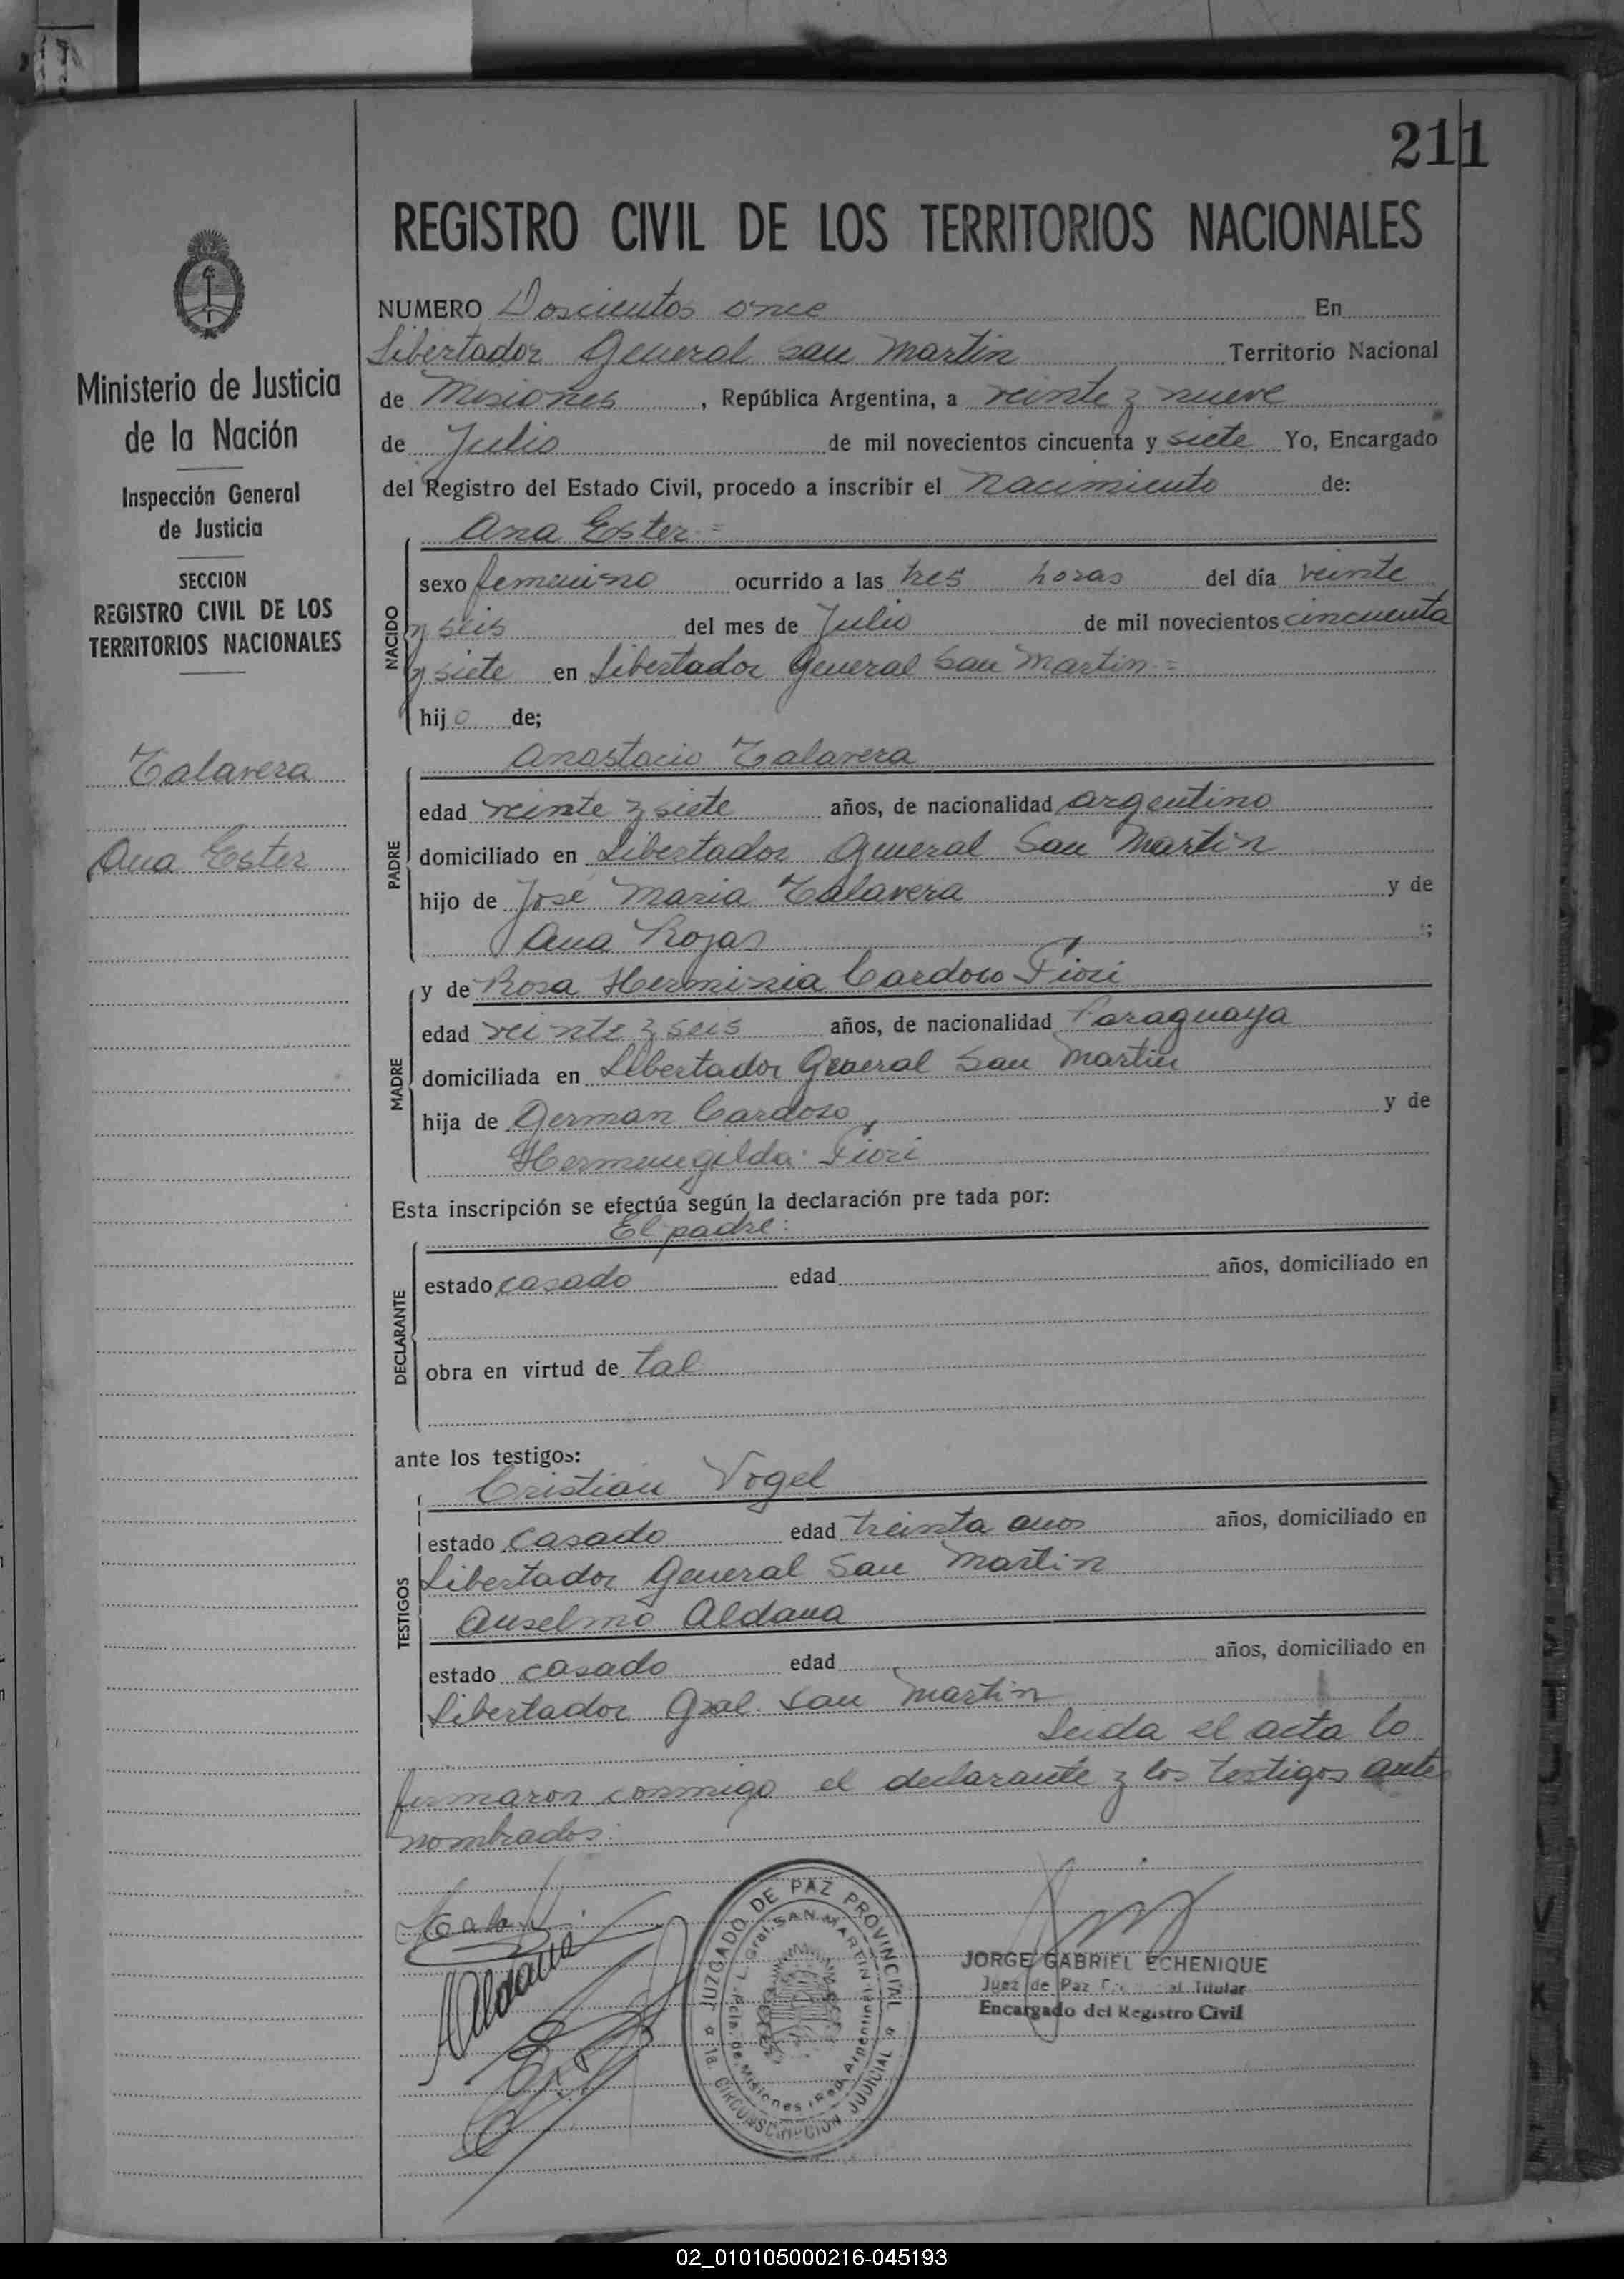 211
REGISTRO CIVIL DE LOS TERRITORIOS NACIONALES
Ministerio de Justicia
de la Nación
Inspección General
de Justicia
SECCION
REGISTRO CIVIL DE LOS
TERRITORIOS NACIONALES
Talavera
Ana Ester
NUMERO Doscientos once En
Libertador General San Martin Territorio Nacional
de Misiones, República Argentina, a veinte y nueve
de Julio de mil novecientos cincuenta y siete Yo, Encargado
del Registro del Estado Civil, procedo a inscribir el nacimiento de:
Ana Ester =
NACIDO
sexo femenino ocurrido a las tres horas del día veinte
y seis del mes de Julio de mil novecientos cincuenta
y siete en Libertador General San Martin =
hijo de;
Anastacio Talavera
PADRE
edad veinte y siete años, de nacionalidad argentino
domiciliado en Libertador General San Martin
hijo de José Maria Talavera y de
Ana Rojas ;
MADRE
y de Rosa Herminia Cardoso Fiori
edad veinte y seis años, de nacionalidad Paraguaya
domiciliada en Libertador General San Martin
hija de German Cardoso y de
Hermenegilda Fiori
Esta inscripción se efectúa según la declaración pre tada por:
El padre:
DECLARANTE
estado casado edad años, domiciliado en
obra en virtud de tal
ante los testigos:
Cristian Vogel
TESTIGOS
estado casado edad treinta anos años, domiciliado en
Libertador General San Martin
Anselmo Aldana
estado casado edad años, domiciliado en
Libertador Gral. San Martin
Leida el acta lo
firmaron conmigo el declarante y los testigos ante
nombrados:
AAldana
JUZGADO DE PAZ PROVINCIAL
1a. CIRCUNSCRIPCION JUDICIAL
L. Gral. SAN MARTIN
Pcia. de Misiones (Rep. Argentina)
JORGE GABRIEL ECHENIQUE
Juez de Paz Titular
Encargado del Registro Civil
02_010105000216-045193